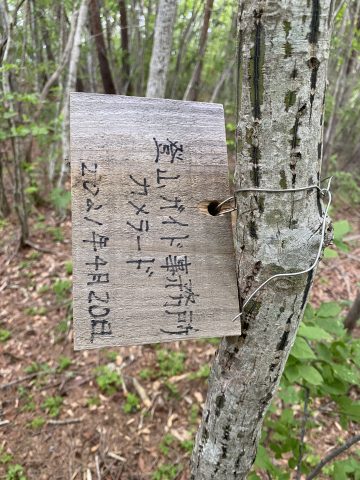 登山ガイド事務所
カメラード
2021年4月20日